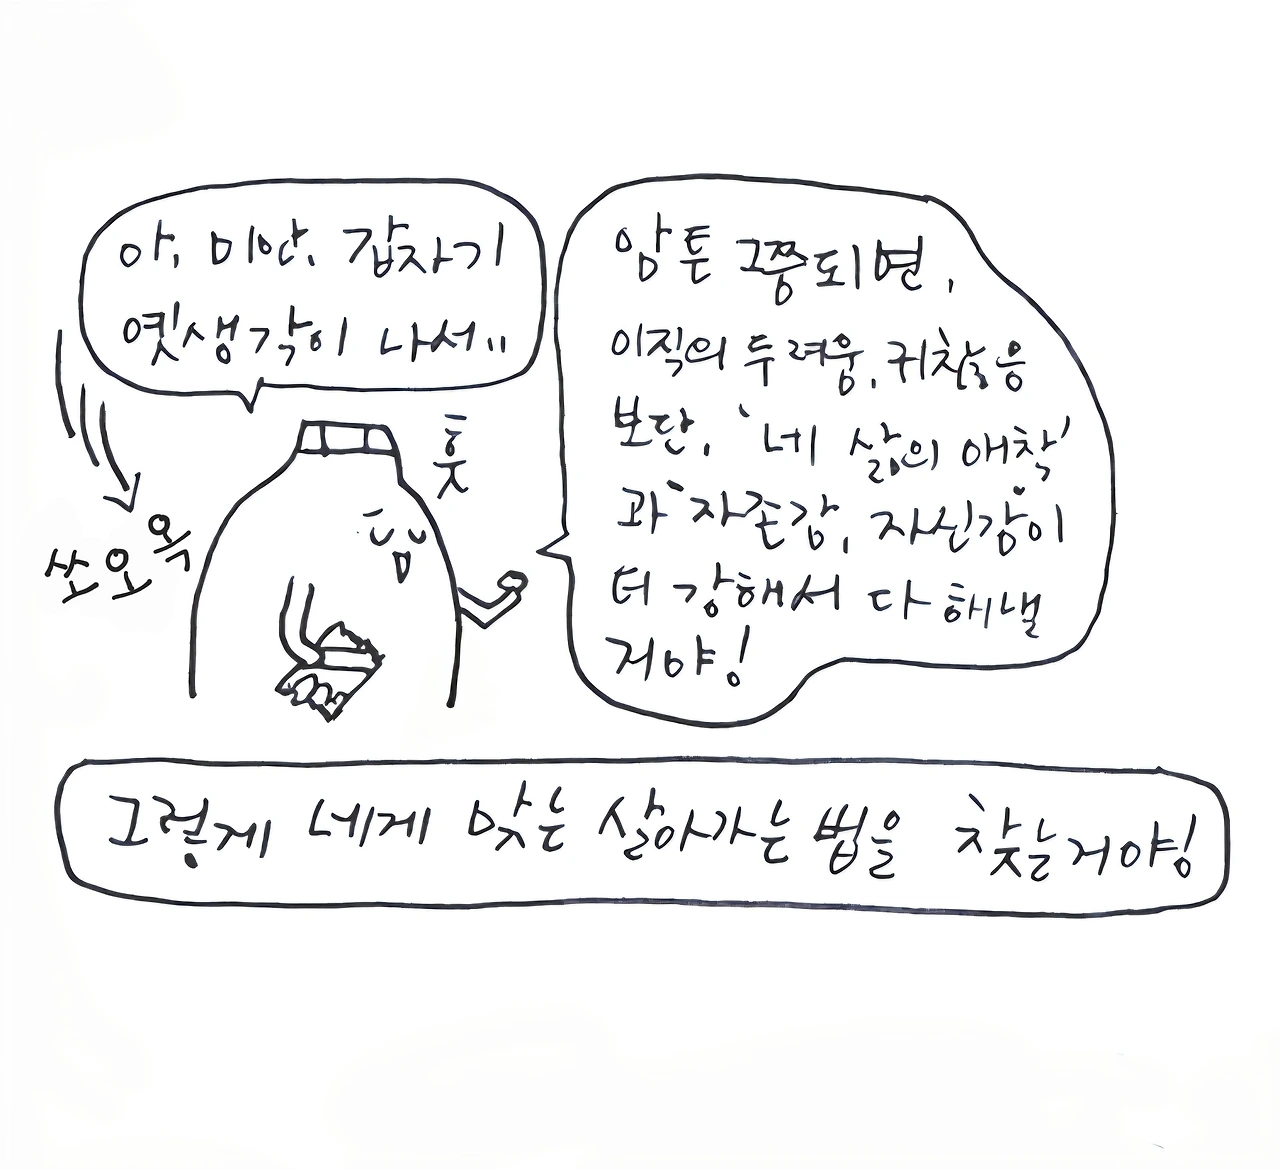 아, 미안, 갑자기
옛생각이 나서..
쏘오옥
흣
암튼 그쯤되면,
이직의 두려움, 귀찮음
보단, '네 삶의 애착'
과 '자존감, 자신감'이
더 강해서 다 해낼
거야!
그렇게 네게 맞는 살아가는 법을 찾는거야!